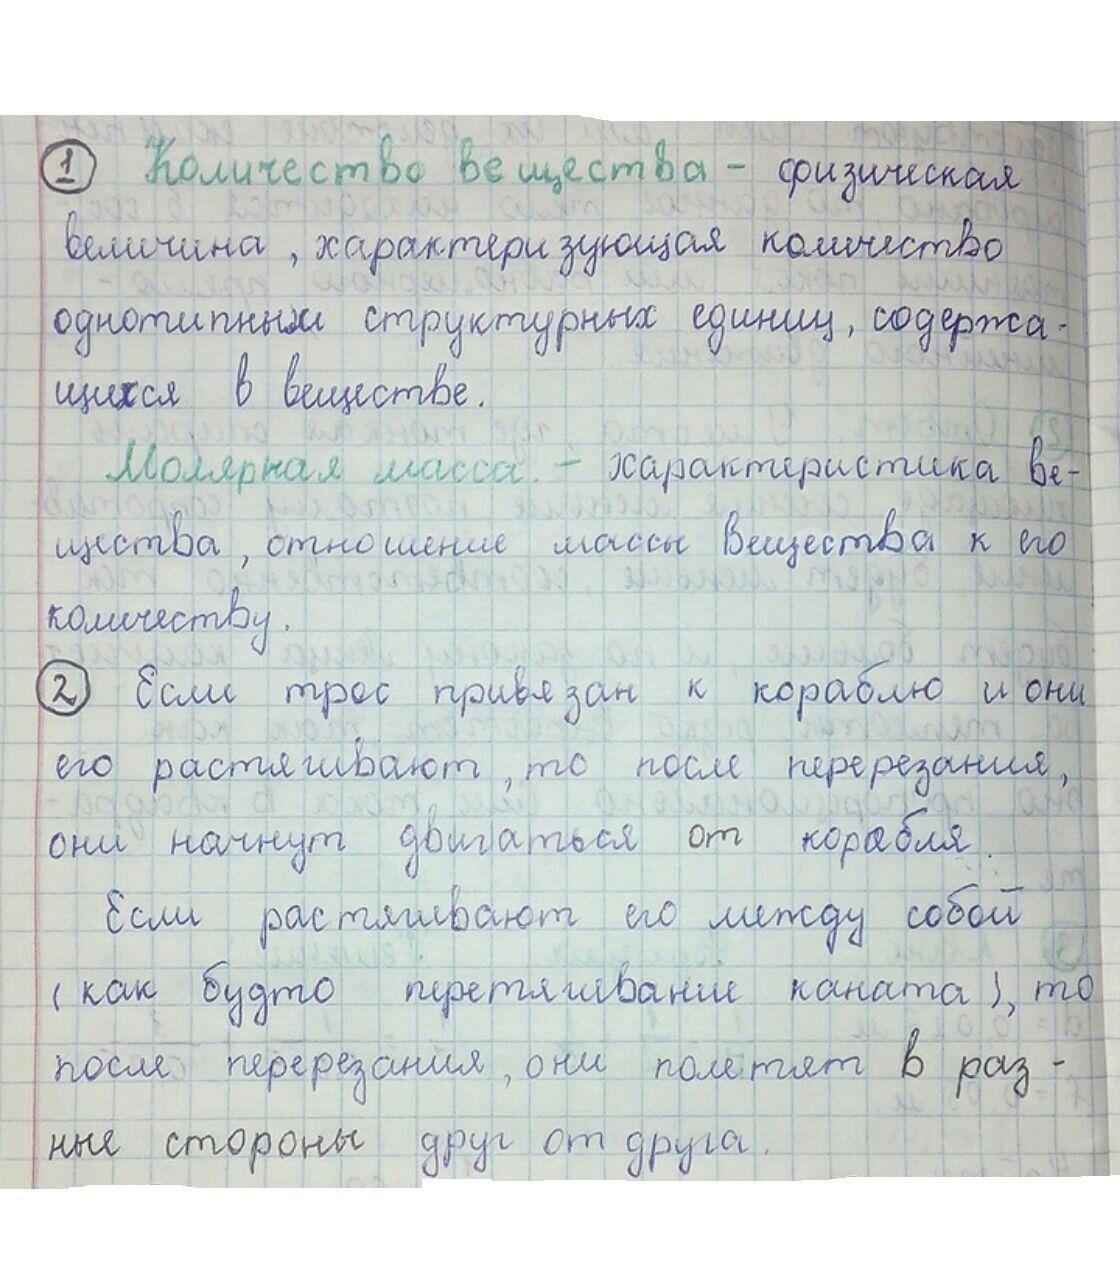 1 Количество вещества - физическая
величина, характеризующая количество
однотипных структурных единиц, содержа-
щихся в веществе.
Молярная масса - характеристика ве-
щества, отношение массы вещества к его
количеству.
2 Если трос привязан к кораблю и они
его растягивают, то после перерезания,
они начнут двигаться от корабля.
Если растягивают его между собой
(как будто перетягивание каната), то
после перерезания, они полетят в раз-
ные стороны друг от друга.